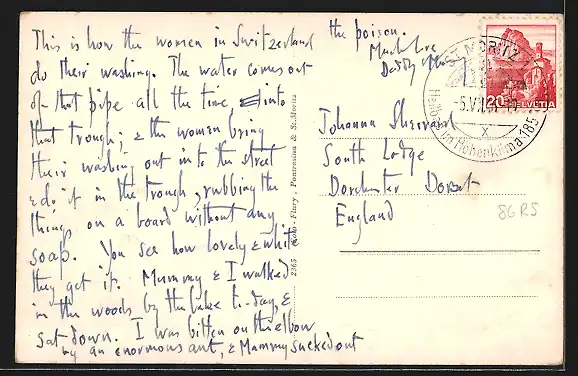 This is how the women in Switzerland
do their washing. The water comes out
of that pipe all the time into
that trough; & the women bring
their washing out into the street
& do it in the trough, rubbing the
things on a board without any
soap. You see how lovely & white
they get it. Mummy & I walked
in the woods by the lake to-day, &
sat down. I was bitten on the elbow
by an enormous ant, & Mammy sucked out
the poison.
Much love
Johanna
South Lodge
Dorchester Dorset
England
ST. MORITZ 1
-5.VII.
Heilbad im Höhenklima 185
X
20 HELVETIA
86RS
2365 Photo: Flury, Pontresina & St. Moritz